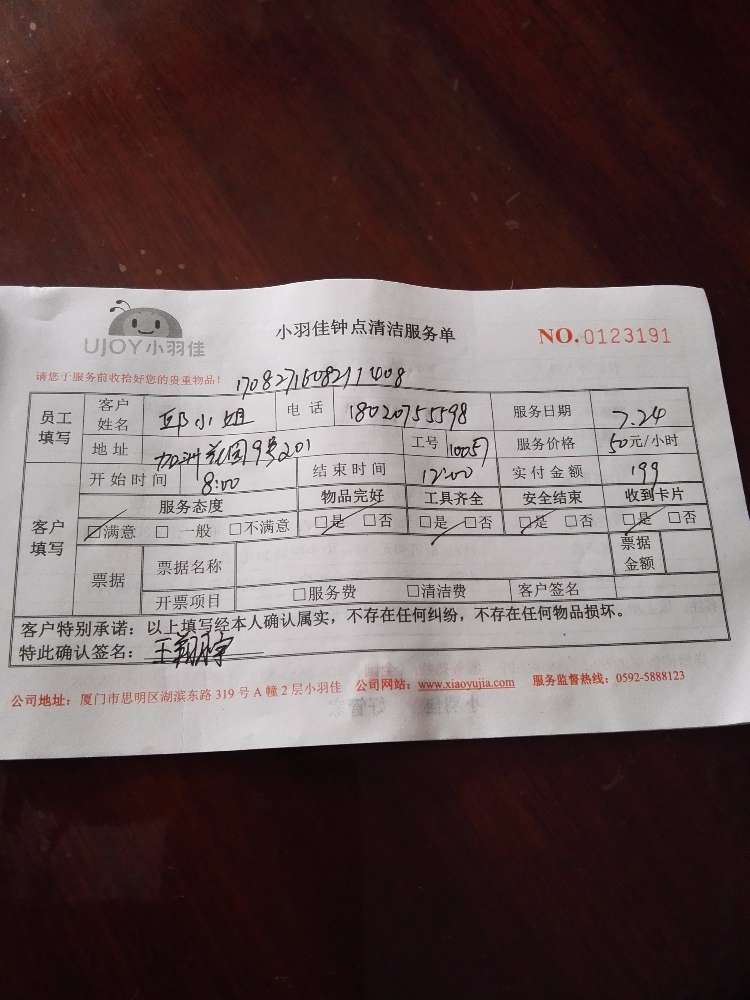 UJOY小羽佳
小羽佳钟点清洁服务单
NO.0123191
请您于服务前收拾好您的贵重物品！
1708271608211408
员工填写 客户姓名 邱小姐 电话 18020755598 服务日期 7.24
地址 加洲花园9号201 工号 服务价格 50元/小时
客户填写 开始时间 8:00 结束时间 12:00 实付金额 199
服务态度 物品完好 工具齐全 安全结束 收到卡片
□满意 □一般 □不满意 □是 □否 □是 □否 □是 □否 □是 □否
票据 票据名称 票据金额
开票项目 □服务费 □清洁费 客户签名
客户特别承诺：以上填写经本人确认属实，不存在任何纠纷，不存在任何物品损坏。
特此确认签名：王翔宇
公司地址：厦门市思明区湖滨东路319号A幢2层小羽佳 公司网站：www.xiaoyujia.com 服务监督热线：0592-5888123